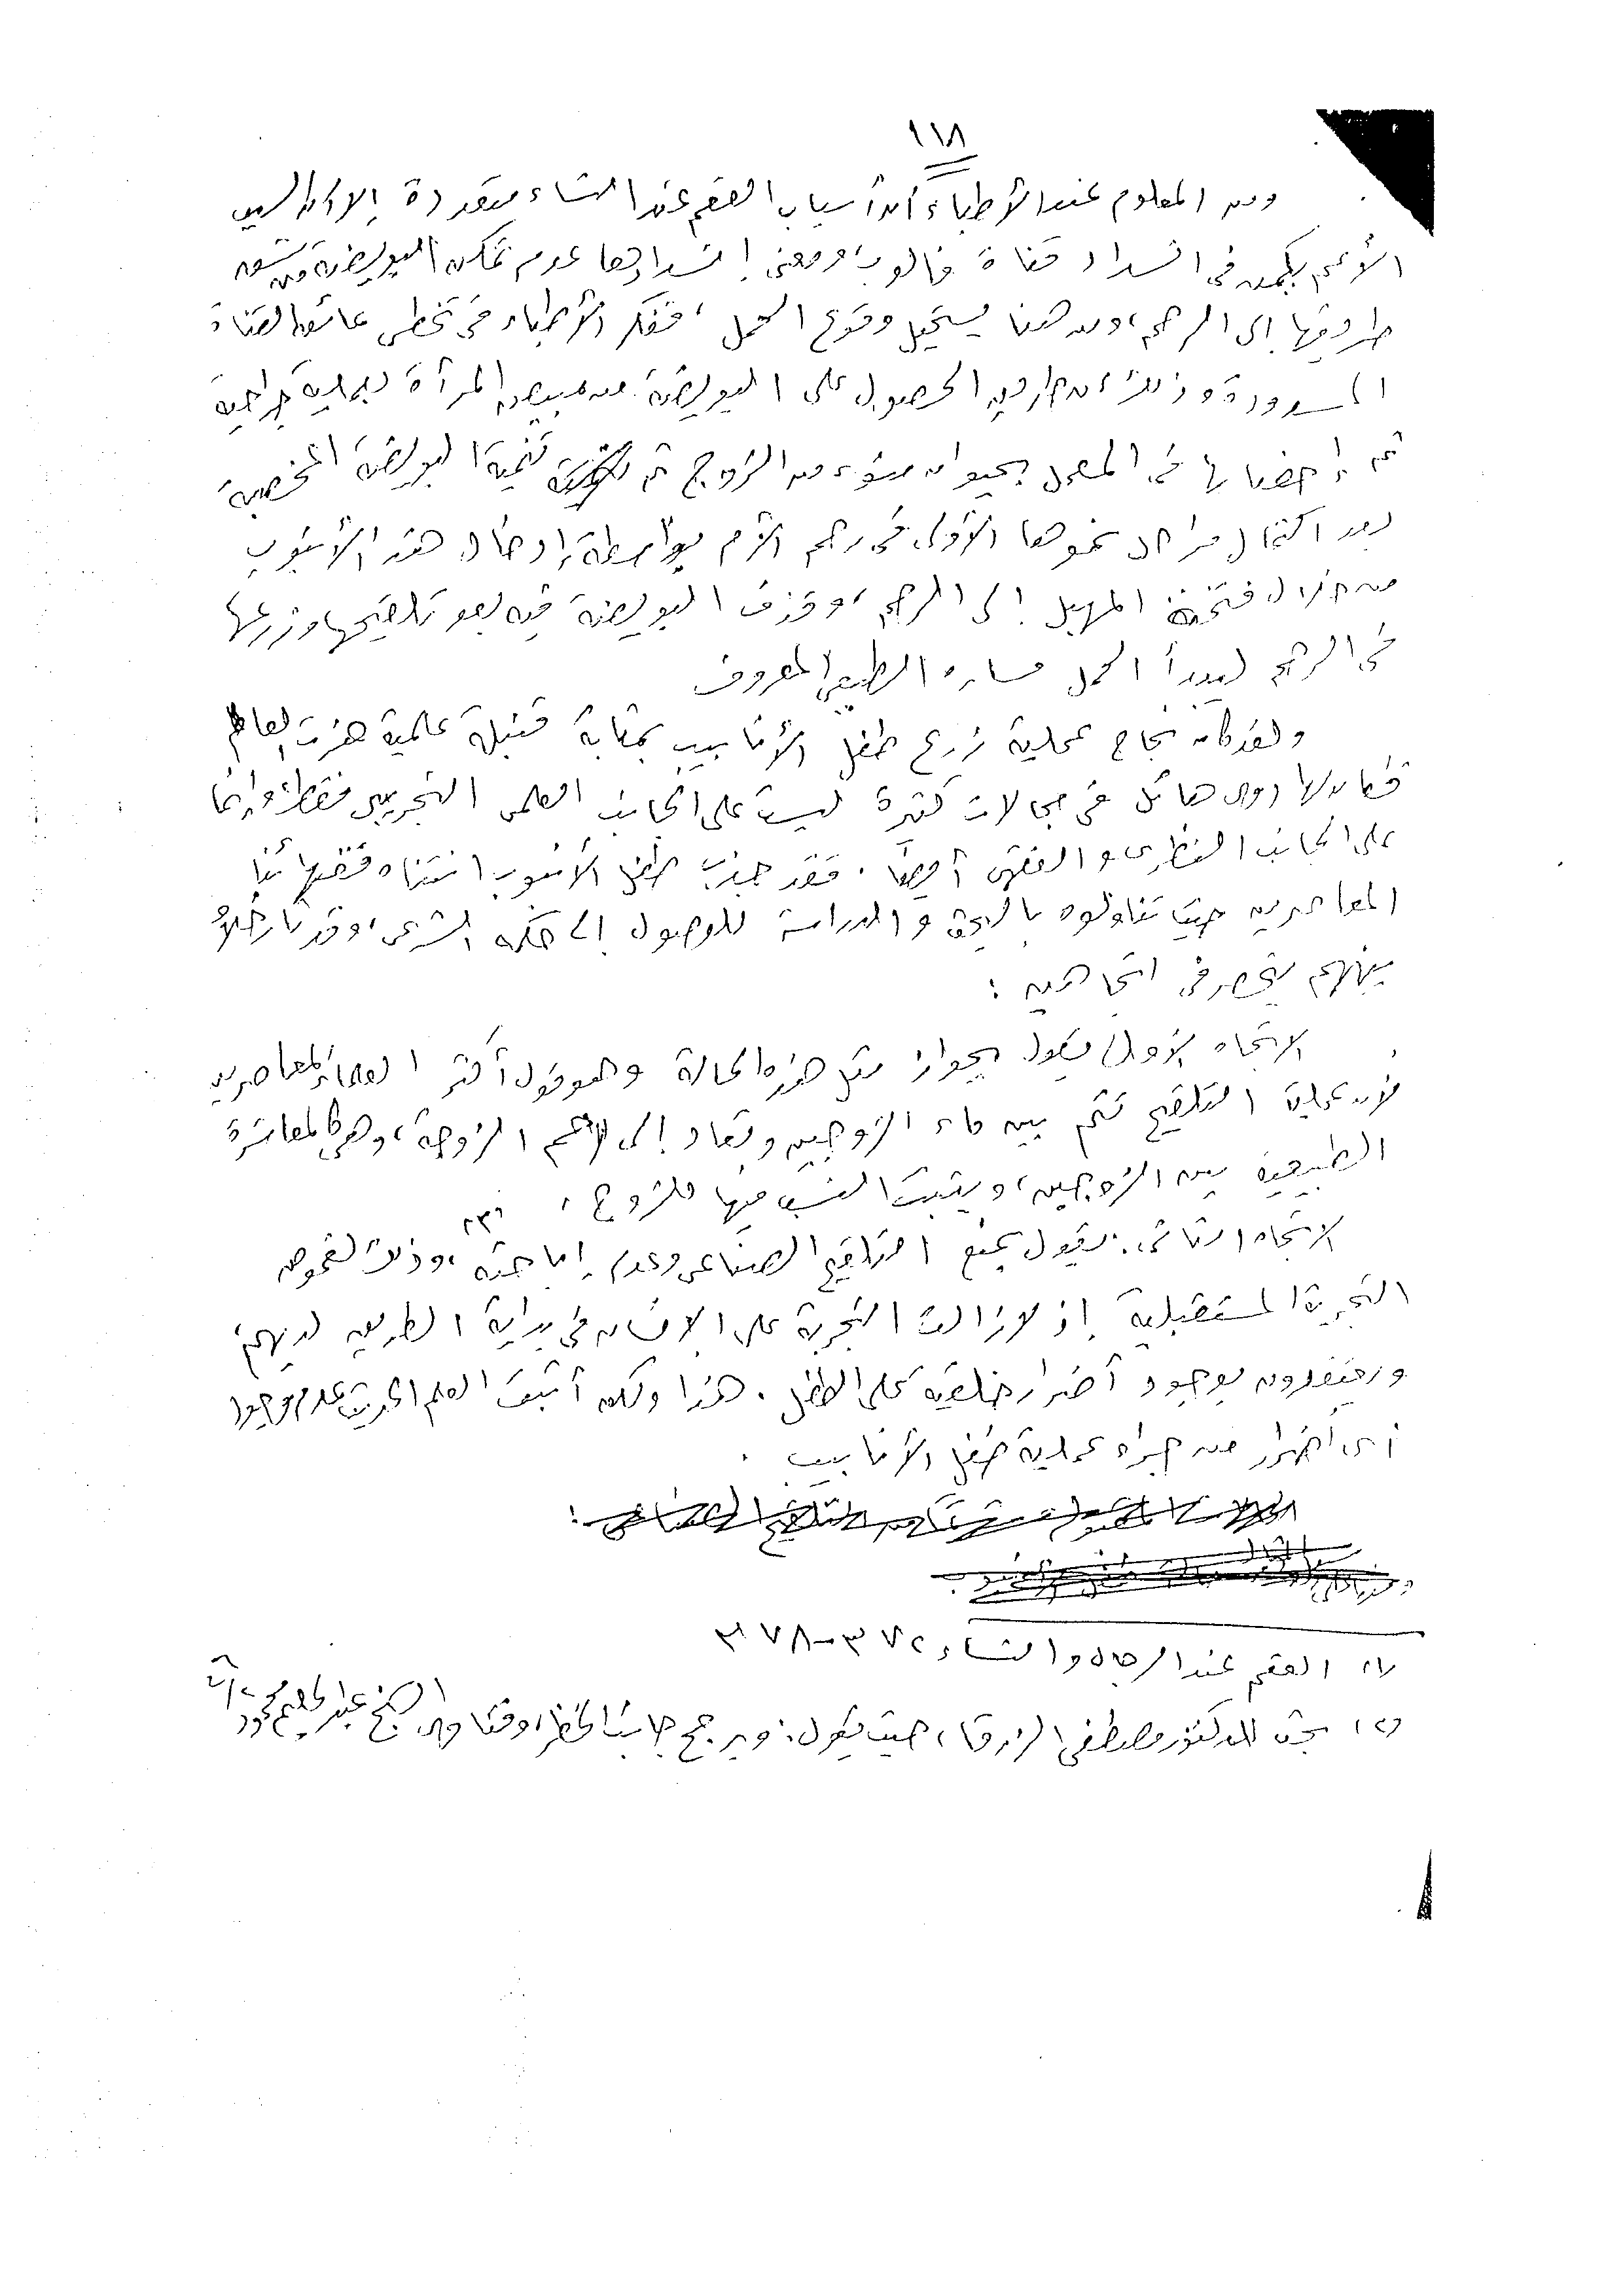 ١١٨
ومن المعلوم عند الأطباء أن أسباب العقم عند النساء متعددة إلا أن السبب
الأعم يكمن في انسداد قناة فالوب، ومعنى انسدادها عدم تمكن البويضة من شق
طريقها إلى الرحم، ومن هنا يستحيل وقوع الحمل، ففكر الأطباء في تخطى عائق القناة
المسدودة وذلك عن طريق الحصول على البويضة من مبيض المرأة بعملية جراحية
ثم إخصابها في المعمل بحيوان منوى من الزوج ثم تنمية البويضة المخصبة
بعد اكتمال مراحل نموها الأولى في رحم الأم بواسطة إدخال هذا الأنبوب
من خلال فتحة المهبل إلى الرحم، وقذف البويضة فيه بعد تلقيحها وزرعها
في الرحم ليبدأ الحمل مساره الطبيعي المعروف
ولقد كان نجاح عملية زرع طفل الأنابيب بمثابة قنبلة علمية هزت العالم
فكان لها دوى هائل في مجالات كثيرة ليست على الجانب العلمى التجريبى فقط، وإنما
على الجانب النظرى والفقهى أيضًا. فقد جذب طفل الأنبوب انتباه فقهائنا
المعاصرين حيث تناولوه بالبحث والدراسة للوصول إلى حكمه الشرعى، وقد
بينهم ينحصر في اتجاهين :
الاتجاه الأول يقول بجواز مثل هذه الحالة وهو قول أكثر العلماء المعاصرين
لأن عملية التلقيح تتم بين ماء الزوجين وتعاد إلى رحم الزوجة، وهي كالمعاشرة
الطبيعية بين الزوجين، ويثبت النسب فيها للزوج .
الاتجاه الثانى: يقول بمنع التلقيح الصناعى وعدم إباحته (٢)، وذلك لغموض
التجربة المستقبلية إذ لازالت التجربة على الإنسان في بداية الطريق لديهم
ويعتقدون بوجود أضرار خلقية على الطفل. هذا ولكن أثبت العلم الحديث عدم وجود
أى أضرار من جراء عملية طفل الأنابيب .
(١) العقم عند الرجال والنساء ٣٧٢-٣٧٨
(٢) بحث للدكتور مصطفى الزرقاء حيث يقول: ويرجح جانب الحظر، وفتاوى الشيخ عبد الحليم محمود